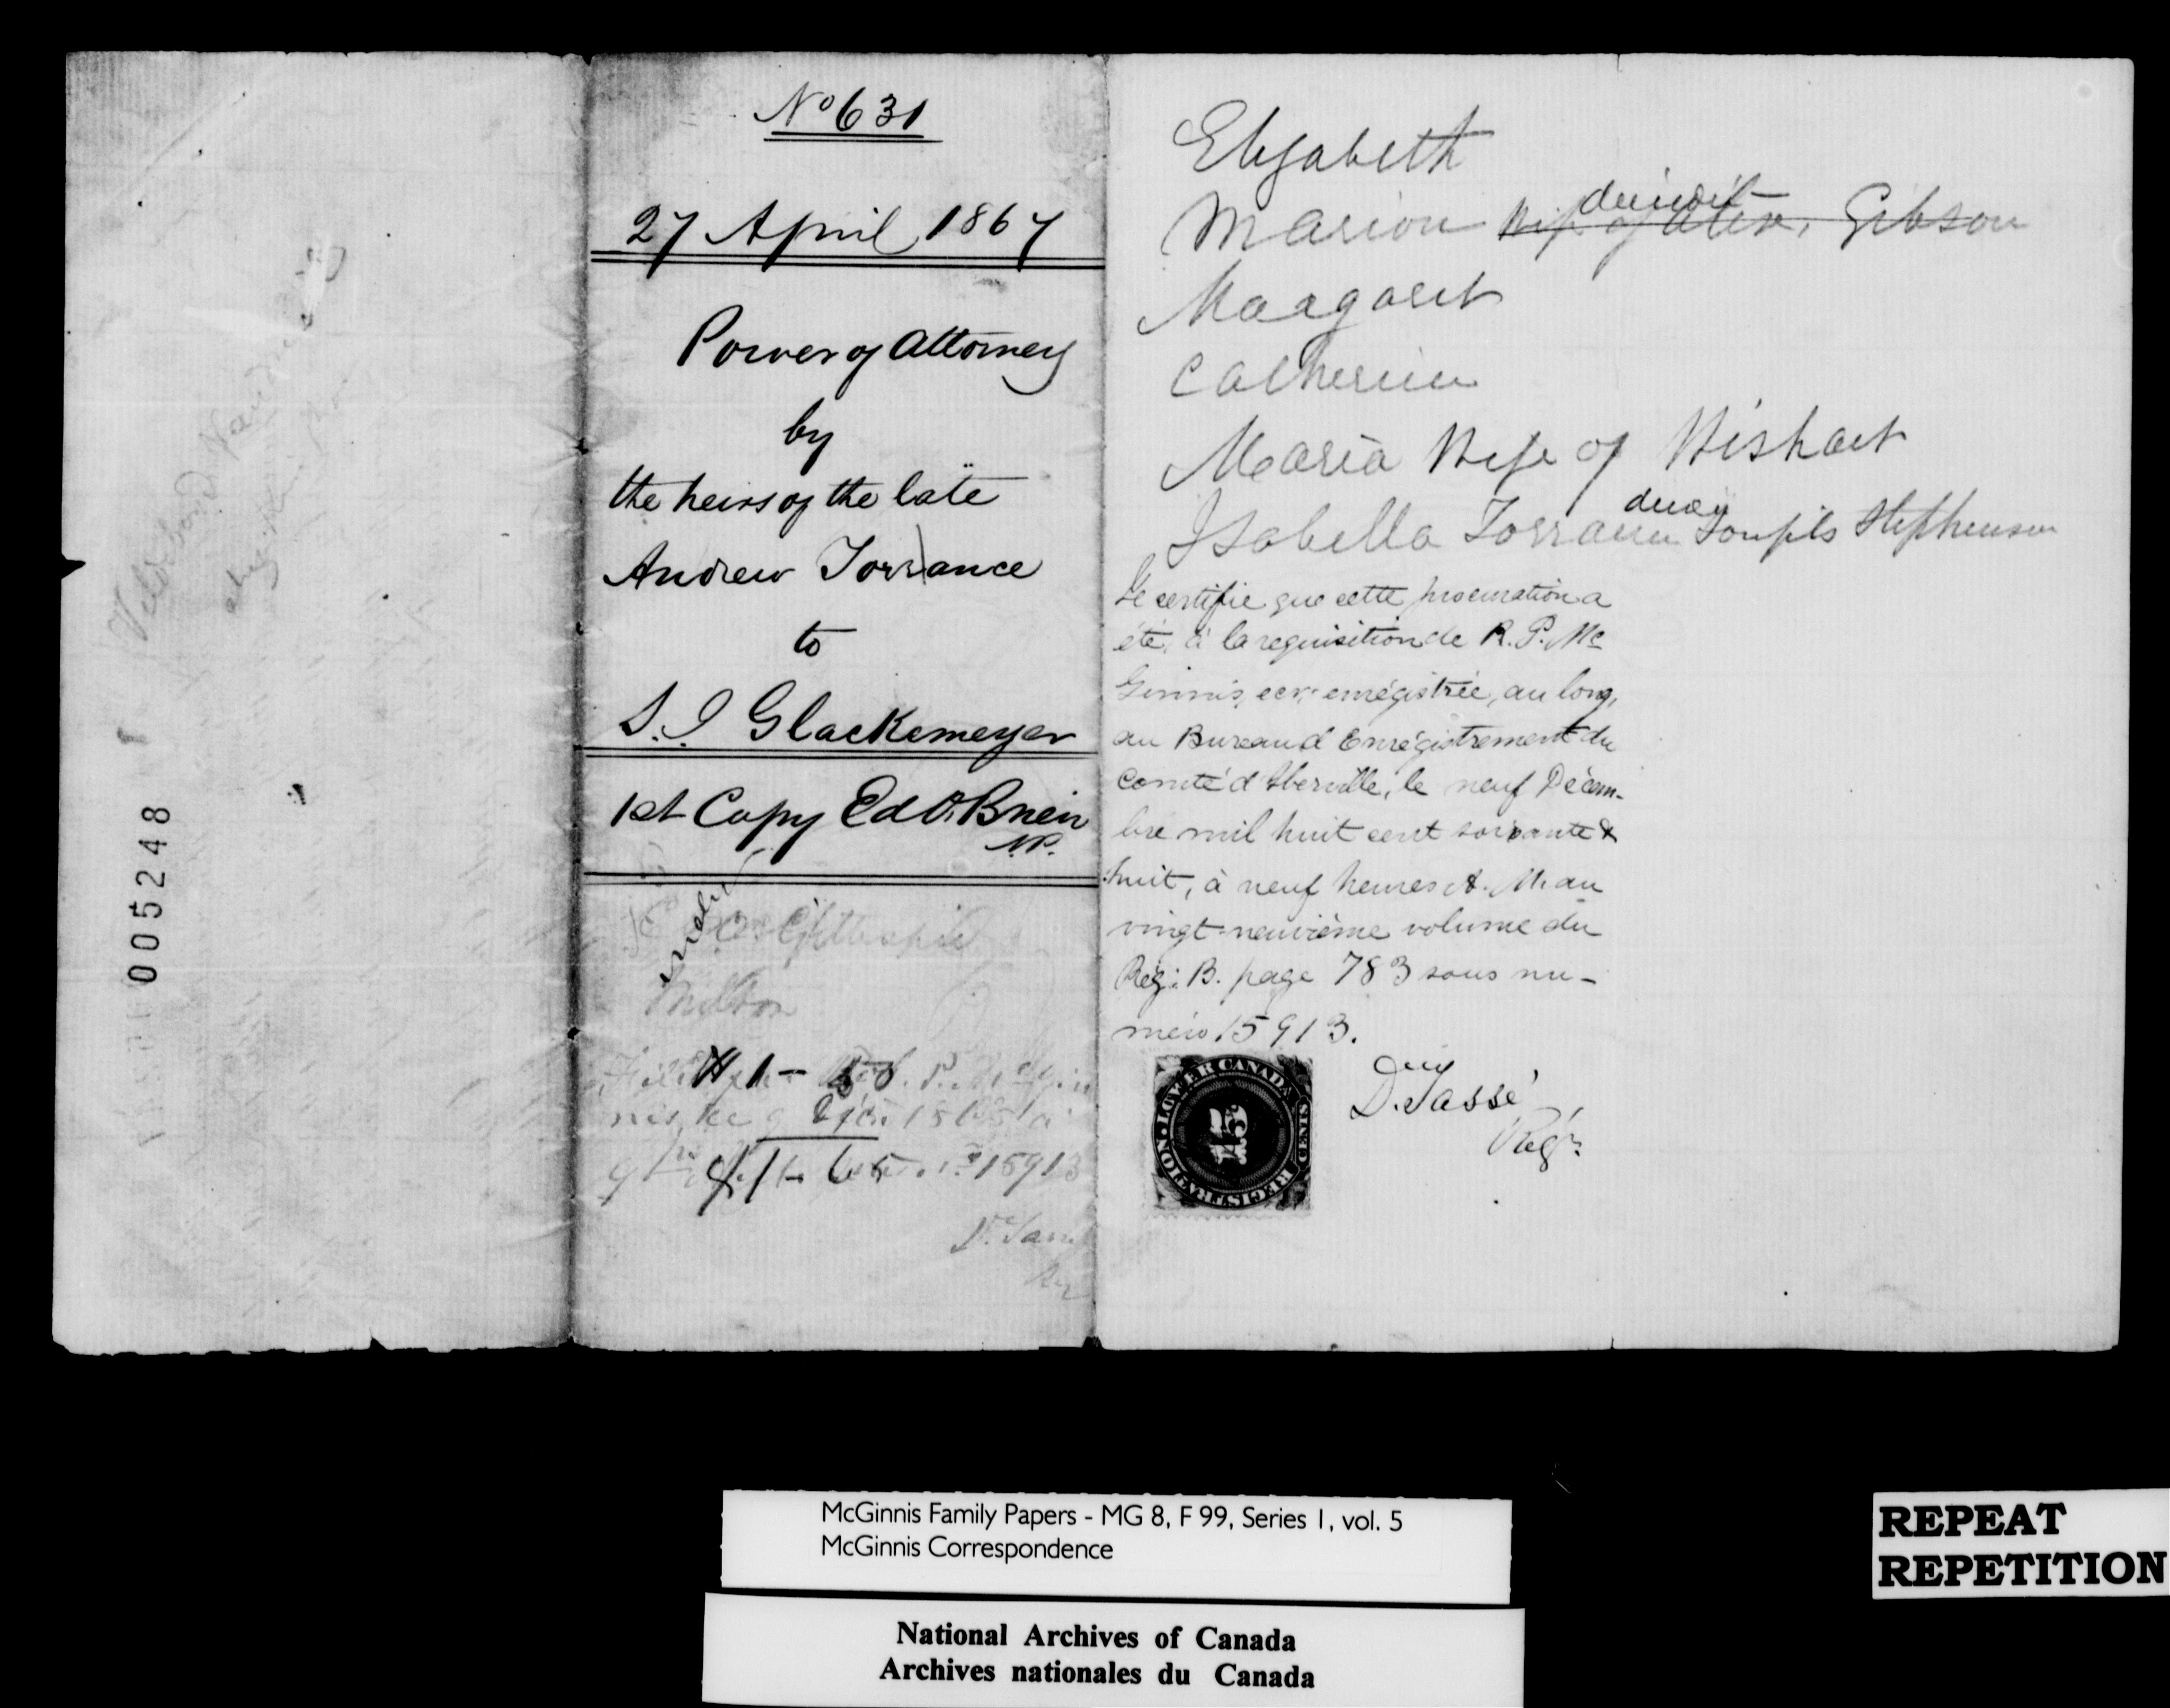 005248
No 631
27 April 1867
Power of Attorney
by
the heirs of the late
Andrew Torrance
to
S. I. Glackemeyer
1st Copy Ed O. Brien
N.P.
Gillespie
Milton
1 -
R. P. McGin
nis
15913
D. Tassé
Elizabeth
Marion Wife of Alex. Gibson
Margaret
Catherine
Maria Wife of Wishart
Isabella Torrance son fils Stephenson
Je certifie que cette procuration a
été, à la requisition de R. P. Mc
Ginnis, ecr. enrégistrée, au long,
au Bureau d'Enrégistrement du
Comté d'Iberville, le neuf Décem-
bre mil huit cent soixante &
huit, à neuf heures A. M. au
vingt-neuvième volume du
Reg: B. page 783 sous nu-
méro 15913.
D. Tassé
Regr.
LOWER CANADA
15
CENTS
REGISTRATION
McGinnis Family Papers - MG 8, F 99, Series 1, vol. 5
McGinnis Correspondence
National Archives of Canada
Archives nationales du Canada
REPEAT
REPETITION